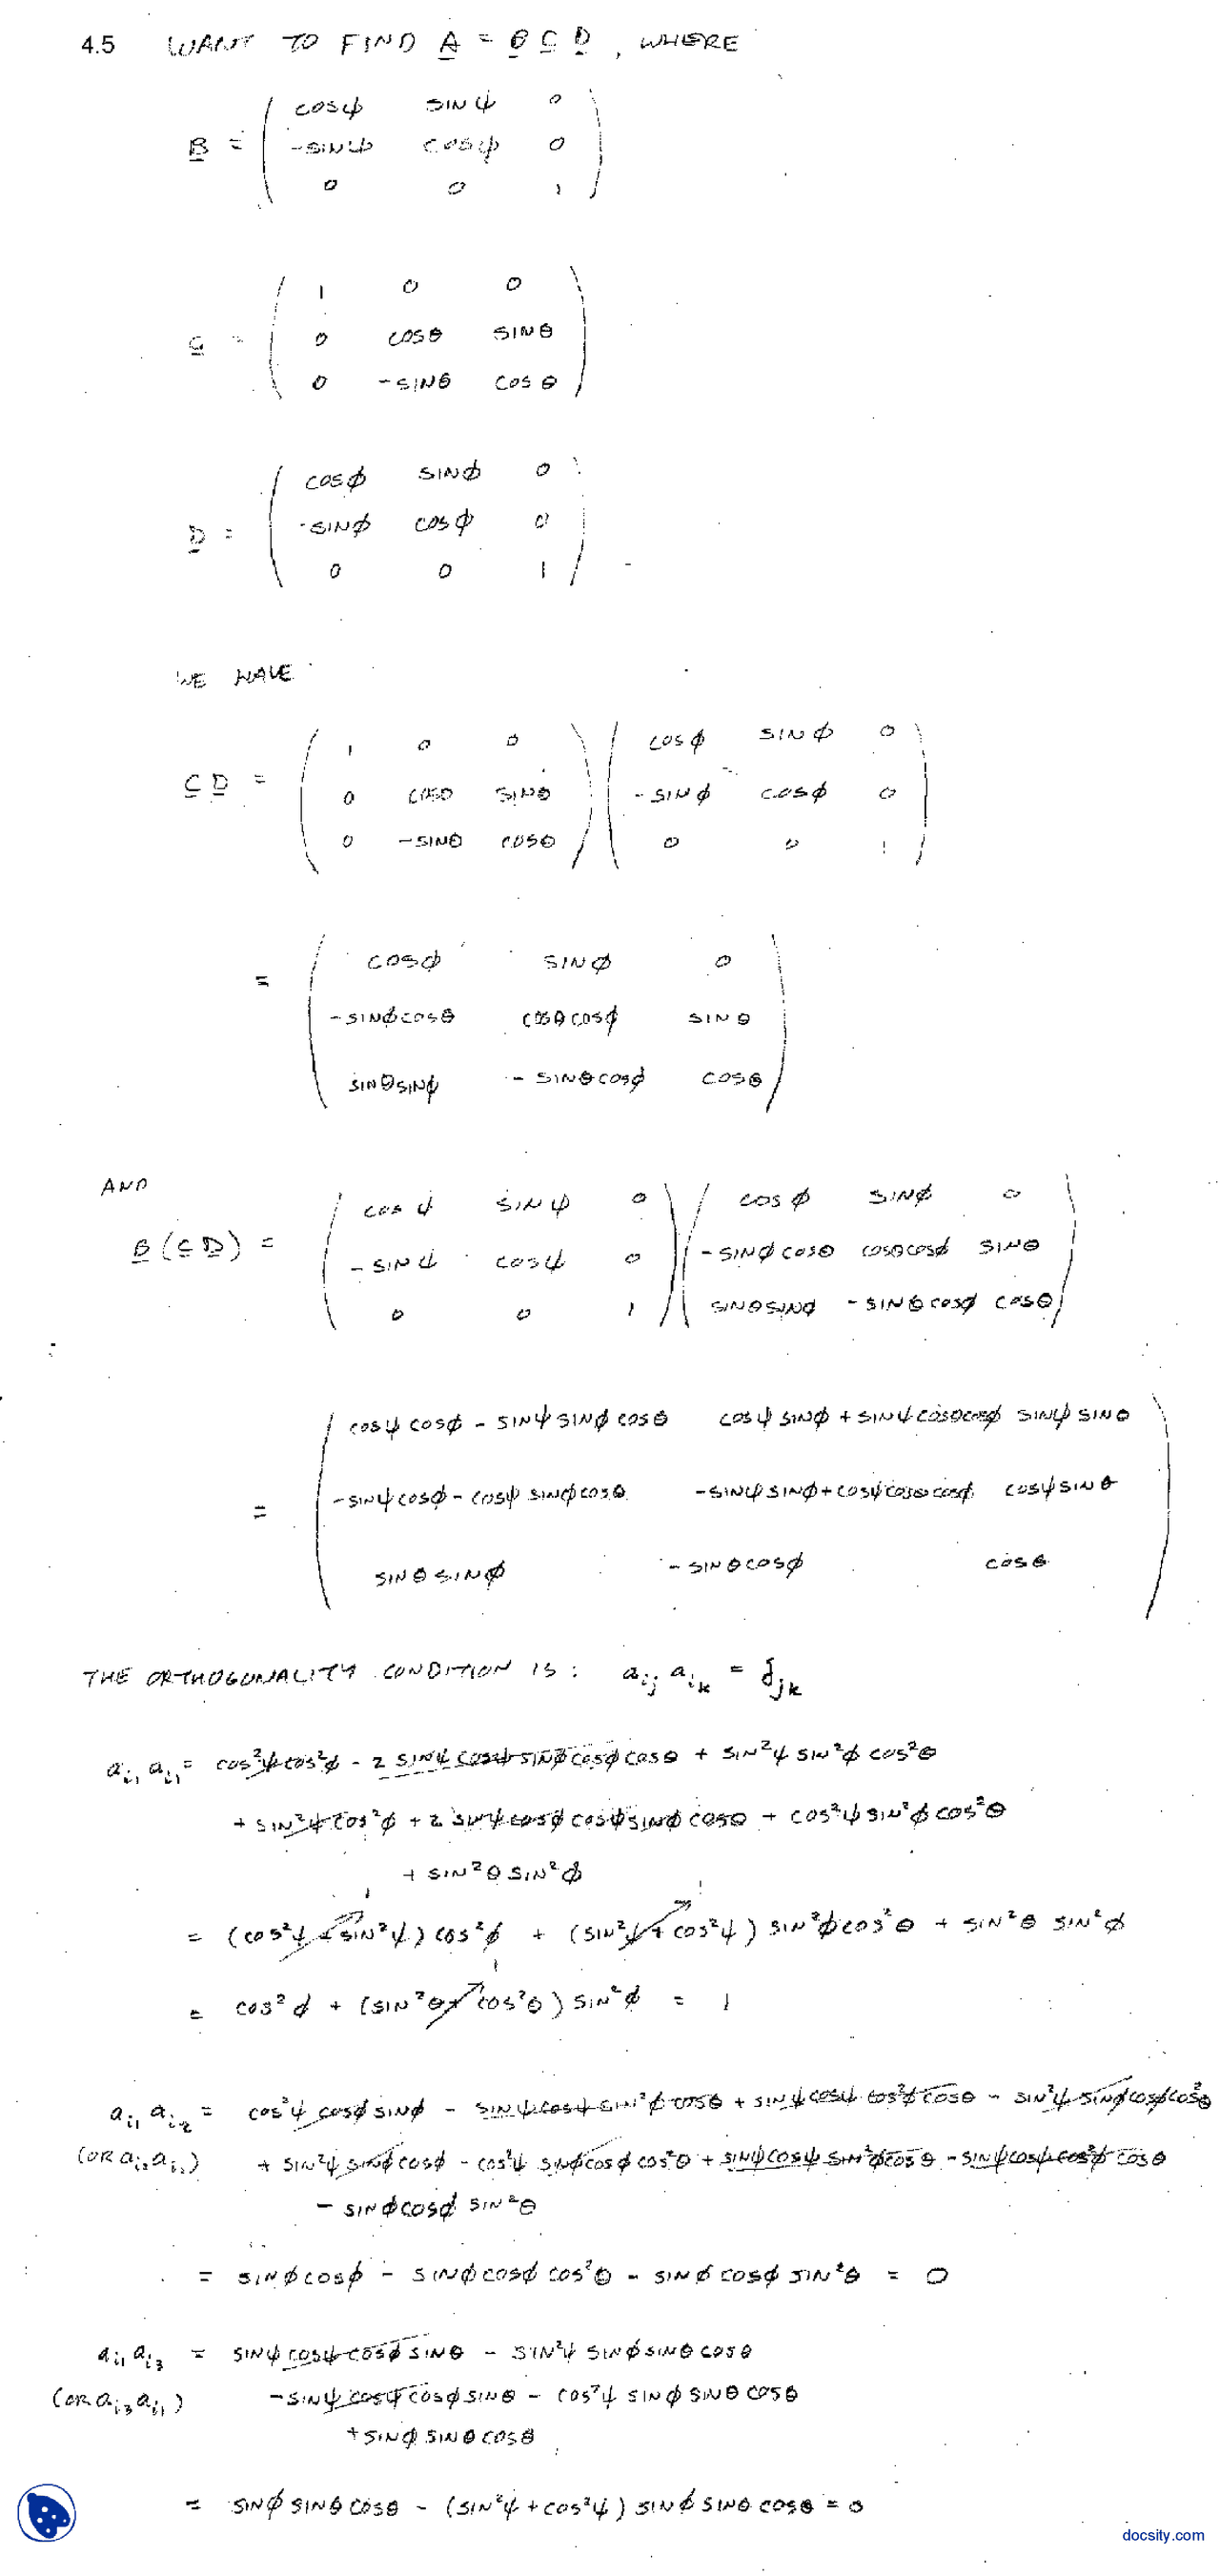 4.5 WANT TO FIND A = B C D , WHERE
B = ( cosψ sinψ 0
-sinψ cosψ 0
0 0 1 )
C = ( 1 0 0
0 cosθ sinθ
0 -sinθ cosθ )
D = ( cosφ sinφ 0
-sinφ cosφ 0
0 0 1 )
WE HAVE
C D = ( 1 0 0 ) ( cosφ sinφ 0
0 cosθ sinθ -sinφ cosφ 0
0 -sinθ cosθ 0 0 1 )
= ( cosφ sinφ 0
-sinφcosθ cosθcosφ sinθ
sinθsinφ -sinθcosφ cosθ )
AND
B(CD) = ( cosψ sinψ 0 ) ( cosφ sinφ 0
-sinψ cosψ 0 -sinφcosθ cosθcosφ sinθ
0 0 1 sinθsinφ -sinθcosφ cosθ )
= ( cosψcosφ - sinψsinφcosθ cosψsinφ + sinψcosθcosφ sinψsinθ
-sinψcosφ - cosψsinφcosθ -sinψsinφ + cosψcosθcosφ cosψsinθ
sinθsinφ -sinθcosφ cosθ )
THE ORTHOGONALITY CONDITION IS: aij aik = δjk
ai1 ai1 = cos²ψcos²φ - 2 sinψcosψsinφcosφcosθ + sin²ψsin²φcos²θ
+ sin²ψcos²φ + 2 sinψcosφcosψsinφcosθ + cos²ψsin²φcos²θ
+ sin²θsin²φ
= (cos²ψ + sin²ψ)cos²φ + (sin²ψ + cos²ψ)sin²φcos²θ + sin²θsin²φ
= cos²φ + (sin²θ + cos²θ)sin²φ = 1
ai1 ai2 = cos²ψcosφsinφ - sinψcosψsin²φcosθ + sinψcosψcos²φcosθ - sin²ψsinφcosφcos²θ
(OR ai2 ai1) + sin²ψsinφcosφ - cos²ψsinφcosφcos²θ + sinψcosψsin²φcosθ - sinψcosψcos²φcosθ
- sinφcosφsin²θ
= sinφcosφ - sinφcosφcos²θ - sinφcosφsin²θ = 0
ai1 ai3 = sinψcosψcosφsinθ - sin²ψsinφsinθcosθ
(OR ai3 ai1) -sinψcosψcosφsinθ - cos²ψsinφsinθcosθ
+ sinφsinθcosθ
= sinφsinθcosθ - (sin²ψ + cos²ψ)sinφsinθcosθ = 0
docsity.com